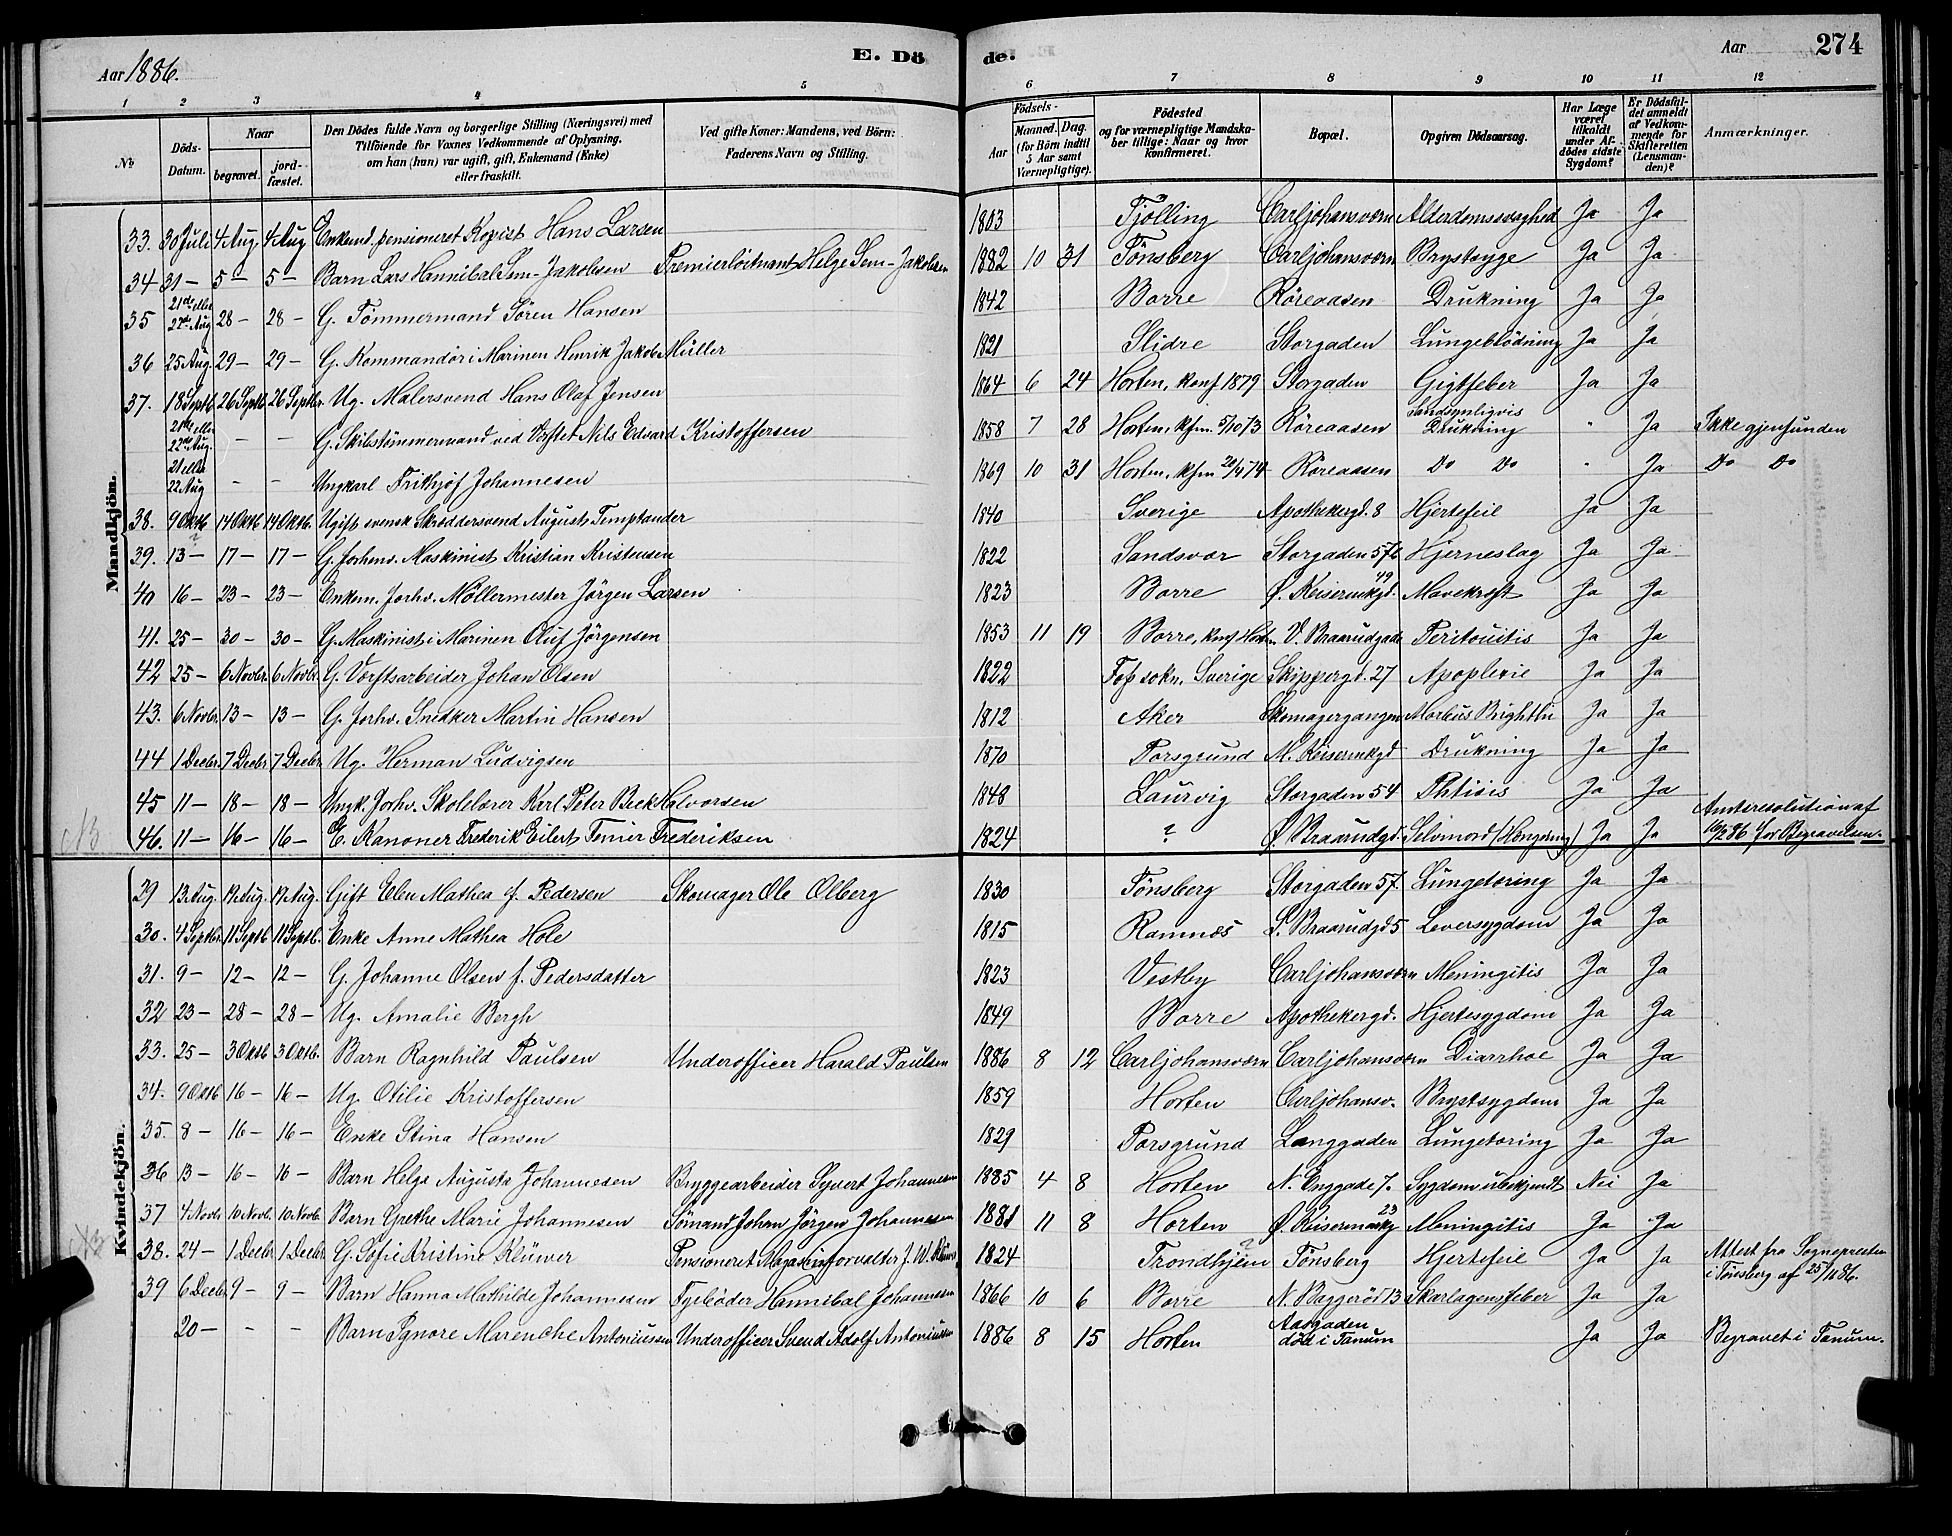 Aar 1886.
E. Dö
de.
Aar
274
1 2 3 4 5 6 7 8 9 10 11 12
No
Döds-Datum.
Naar
begravet.
jord-fæstet.
Den Dödes fulde Navn og borgerlige Stilling (Næringsvei) med
Tilföiende for Voxnes Vedkommende af Oplysning,
om han (hun) var ugift, gift, Enkemand (Enke)
eller fraskilt.
Ved gifte Koner: Mandens, ved Börn:
Faderens Navn og Stilling.
Födsels-
Aar
Maaned.
Dag.
(for Börn indtil
5 Aar samt
Værnepligtige).
Födested
og for værnepligtige Mandska-
ber tillige: Naar og hvor
konfirmeret.
Bopæl.
Opgiven Dödsaarsag.
Har Læge
været
tilkaldt
under Af-
dödes sidste
Sygdom?
Er Dödsfal-
det anmeldt
af Vedkom-
mende for
Skifteretten
(Lensman-
den)?
Anmærkninger.
Mandkjön.
33. 30 Juli 4 Aug 4 Aug Enkemd. pensioneret Kopist Hans Larsen 1803 Tjölling Carljohansværn Alderdomssvaghed Ja Ja
34 31 – 5 – 5 – Barn Lars Hannibal Sem-Jakobsen Premierlöitnant Helge Sem-Jakobsen 1882 10 31 Tönsberg Carljohansværn Brystsyge Ja Ja
35 21de eller 22de Aug 28 – 28 – G. Tömmermand Sören Hansen 1842 Borre Röreaasen Drukning Ja Ja
36 25 Aug 29 – 29 – G. Kommandör i Marinen Henrik Jakob Müller 1821 Slidre Storgaden Lungeblödning Ja Ja
37. 18 Septb. 26 Septb. 26 Septbr. Ug. Malersvend Hans Olaf Jensen 1864 6 24 Horten, konf 1879 Storgaden Gigtfeber Ja Ja
21de eller 22de Aug. – – G. Skibstömmermand ved Værftet Nils Edvard Kristoffersen 1858 7 28 Horten, kfm. 5/10 73 Röreaasen Sandsynligvis Drukning " Ja Ikke gjenfunden
21 eller 22 Aug – – Ungkarl Frithjof Johannesen 1869 10 31 Horten, kfm Röreaasen Do Do " Ja Do Do
38. 9 Oktb 14 Oktb 14 Oktb. Ugift svensk Skræddersvend August Temptander 1840 Sverige Apothekergd. 8 Hjertefeil Ja Ja
39. 13 – 17 – 17 – G. forhenv. Maskinist Kristian Kristensen 1822 Sandsvær Storgaden 57 Hjerneslag Ja Ja
40 16 – 23 – 23 – Enkem. forhv. Möllermester Jörgen Larsen 1823 Borre Ø. Keisermkgd. 49 Mavekræft Ja Ja
41. 25 – 30 – 30 – G. Maskinist i Marinen Oluf Jörgensen 1853 11 19 Borre, konf Horten V. Braarudgade Peritonitis Ja Ja
42 25 – 6 Novbr. 6 Novbr. G. Værftsarbeider Johan Olsen 1822 sokn. Sverige Skippergd. 27 Apoplexie Ja Ja
43. 6 Novbr. 13 – 13 – G. forhv. Snedker Martin Hansen 1812 Aker Skomagergangen Morbus Brightii Ja Ja
44 1 Decbr. 7 Decbr. 7 Decbr. Ug. Herman Ludvigsen 1870 Porsgrund M. Keisermkgd Drukning Ja Ja
45 11 – 18 – 18 – Ungk. forhv. Skolelærer Karl Peter Beck Halvorsen 1848 Laurvig Storgaden 54 Phtisis Ja Ja
NB 46. 11 – 16 – 16 – E. Kanoner Frederik Eilert Frederiksen 1824 ? Ø. Braarudgd. Selvmord (Hængning) Ja Ja Amtsresolution af 86 for Begravelsen.
Kvindekjön.
29 13 Aug. 19 Aug. 19 Aug. Gift Elen Mathea f. Pedersen Skomager Ole Olberg 1830 Tönsberg Storgaden 57. Lungetæring Ja Ja
30. 4 Septbr. 11 Septb. 11 Septb. Enke Anne Mathea Hole 1815 Ramnæs S. Braarudgd 5 Leversygdom Ja Ja
31. 9 – 12 – 12 – G. Johanne Olsen f. Pedersdatter 1823 Vestby Carljohansværn Meningitis Ja Ja
32 23 – 28 – 28 – Ug. Amalie Bergh 1849 Borre Apothekergd. Hjertesygdom Ja Ja
33. 25 – 3 Oktb 3 Oktb. Barn Ragnhild Paulsen Underofficer Harald Paulsen 1886 8 12 Carljohansværn Carljohansværn Diarrhoe Ja Ja
34. 9 Oktb 16 – 16 – Ug. Otilie Kristoffersen 1859 Horten Carljohansv. Brystsygdom Ja Ja
35. 8 – 16 – 16 – Enke Stina Hansen 1829 Porsgrund Langgaden Lungetæring Ja Ja
36 13 – 16 – 16 – Barn Helga Augusta Johannesen Bryggearbeider Syvert Johannesen 1885 4 8 Horten N. Enggade 7. Sygdom ubekjendt Nei Ja
37 4 Novbr. 10 Novbr. 10 Novbr. Barn Grethe Marie Johannesen Sömand Johan Jörgen Johannesen 1881 11 8 Horten Ø. Keisermarkg 23 Meningitis Ja Ja
NB 38. 24 – 1 Decbr 1 Decbr. G. Sofie Kristine Klüwer Pensioneret Magasinforvalter J. W. Klüwer 1824 Trondhjem ? Tönsberg Hjertefeil Ja Ja Attest fra Sognepresten i Tönsberg af 25/11 86.
39 6 Decbr. 9 – 9 – Barn Hanna Mathilde Johannesen Fyrböder Hannibal Johannesen 1866 10 6 Borre N. Baggerös 13 Skarlagensfeber Ja Ja
20 – – – Barn Signore Marenche Antoniussen Underofficer Svend Adolf Antoniussen 1886 8 15 Horten Aasgaden död i Tanum Ja Ja Begravet i Tanum.